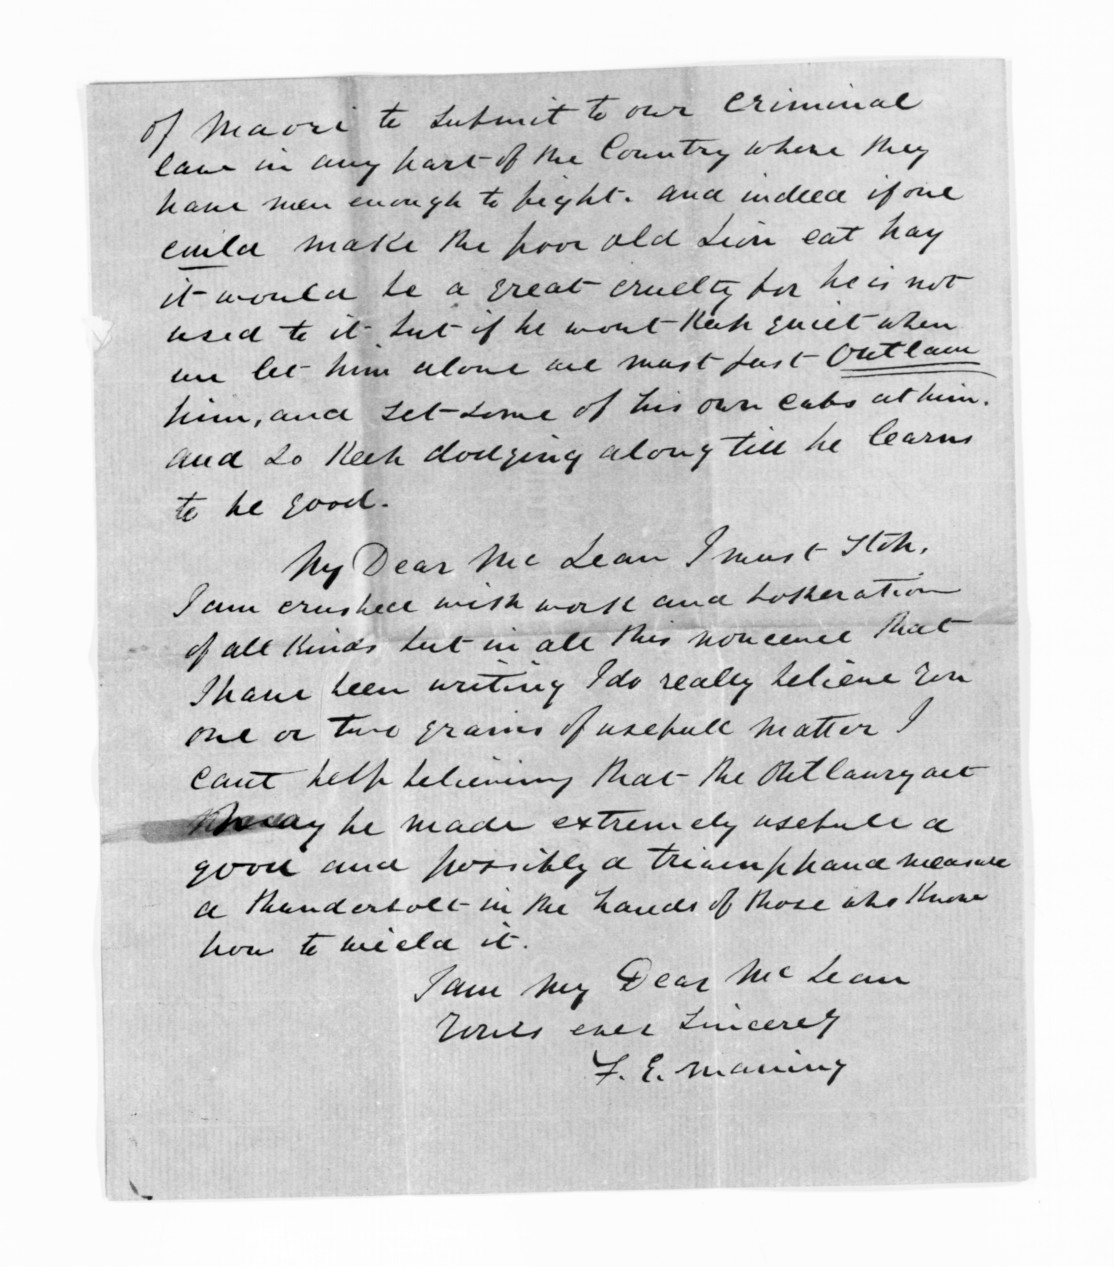 of Maori to submit to our Criminal
law in any part of the Country where they
have men enough to fight. and indeed if one
could make the poor old Lion eat hay
it would be a great cruelty for he is not
used to it but if he wont keep quiet when
we let him alone we must just Outlaw
him, and set some of his own cubs at him.
and so keep dodging along till he learns
to be good.
My Dear McLean I must stop.
I am crushed with work and botheration
of all kinds but in all this noncence that
I have been writing I do really believe you
one or two grains of usefull matter I
cant help believing that the Outlawry act
may be made extremely usefull a
good and possibly a triumphand measure
a thunderbolt in the hands of those who know
how to wield it.
I am My Dear McLean
Yours ever Sincerely
F. E. Maning